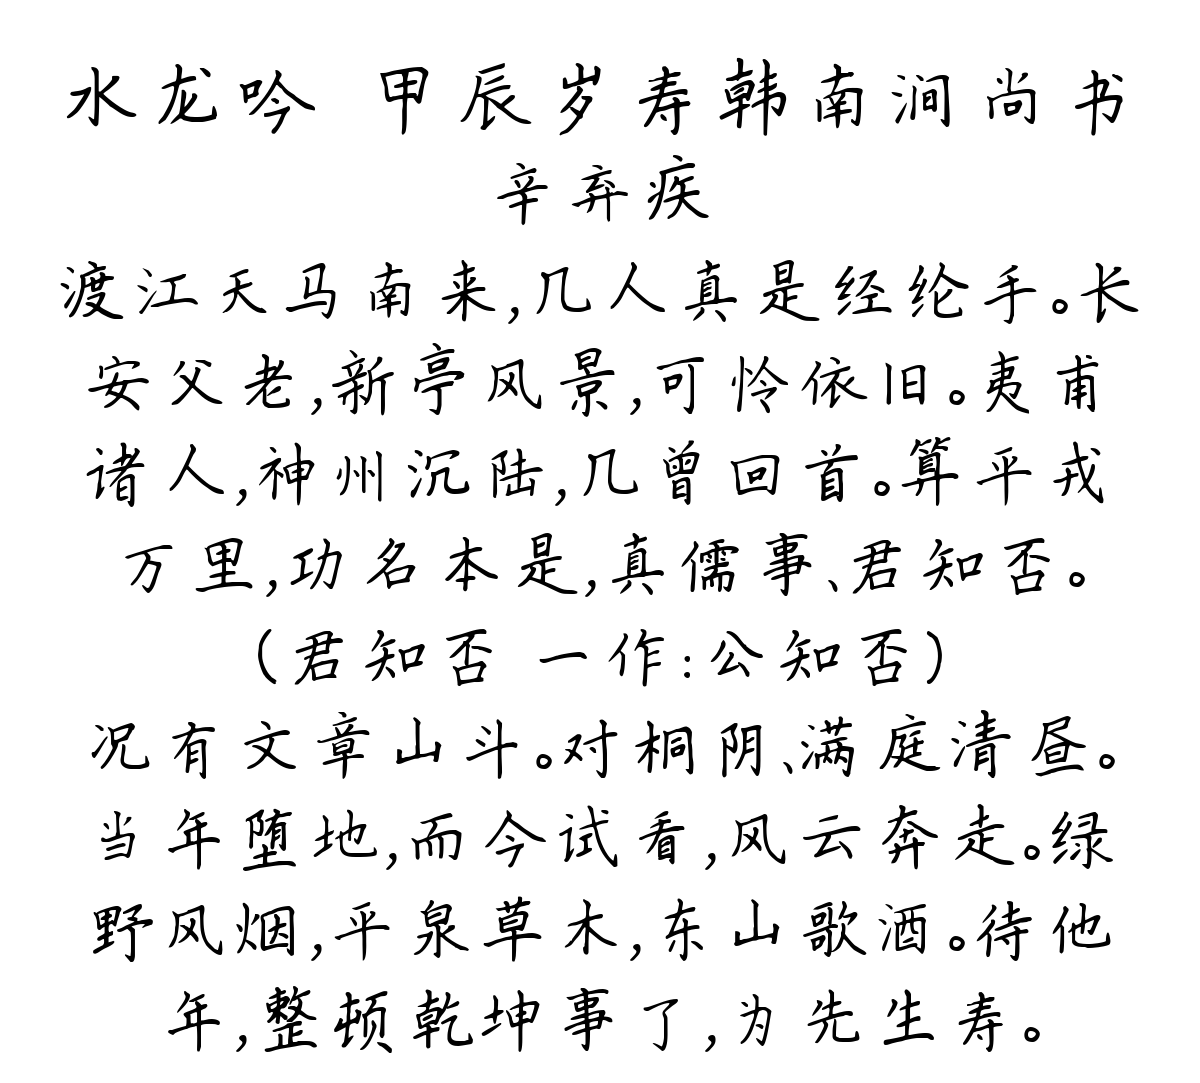 水龙吟 甲辰岁寿韩南涧尚书
辛弃疾
渡江天马南来,几人真是经纶手。长
安父老,新亭风景,可怜依旧。夷甫
诸人,神州沉陆,几曾回首。算平戎
万里,功名本是,真儒事、君知否。
(君知否 一作:公知否)
况有文章山斗。对桐阴、满庭清昼。
当年堕地,而今试看,风云奔走。绿
野风烟,平泉草木,东山歌酒。待他
年,整顿乾坤事了,为先生寿。